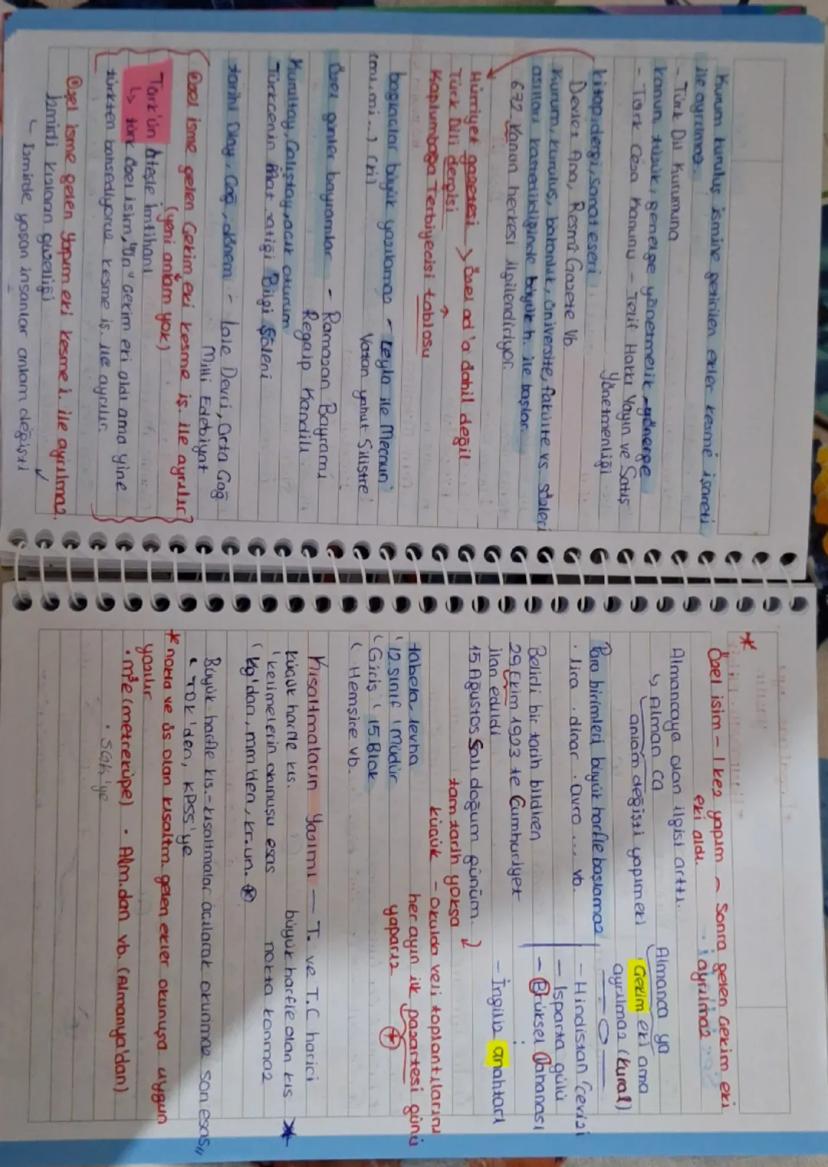 Kurum kuruluş ismine getirilen ekler kesme işareti
ile ayrılmaz.
- Türk Dil Kurumuna
kanun, tüzük, genelge yönetmelik yönerge
- Türk Ceza Kanunu - Telif Hakkı Yayın ve Satış
Yönetmenliği
kitap, dergi, sanat eseri
Devlet Ana, Resmî Gazete vb.
Kurum, kuruluş, bakanlık, üniversite, fakülte vs. sözleri
asılları kastedildiğinde büyük h. ile başlar.
672 Kanun herkesi ilgilendiriyor.
Hürriyet gazetesi → özel ad'a dahil değil
Türk Dili dergisi
Kaplumbağa Terbiyecisi tablosu
bağlaçlar büyük yazılamaz - Leyla ile Mecnun
(mı, mi...)
Vatan yahut Silistre
özel günler bayramlar - Ramazan Bayramı
Regaip Kandili
Kurultay, Çalıştay, açık oturum
Türkçenin Bilgi Şöleni
tarihi Olay, Çağ, dönem - Lale Devri, Orta Çağ
Milli Edebiyat
Özel isme gelen çekim eki kesme iş. ile ayrılır
(yeni anlam yok)
Türk'ün Ateşle İmtihanı
↳ türk özel isim, "ün" çekim eki aldı ama yine
türkten bahsediyoruz kesme iş. ile ayrılır.
Özel isme gelen yapım eki kesme i. ile ayrılmaz.
İzmirli kızların güzelliği
↳ İzmirde yaşan insanlar anlam değişti ✓
* Özel isim - 1 kez yapım ~ Sonra gelen çekim eki
eki aldı. ayrılmaz
Almancaya olan ilgisi arttı.
↳ Alman ca
anlam değişti yapım eki
Almanca ya
Çekim eki ama
ayrılmaz (kural)
Para birimleri büyük harfle başlamaz
· lira · dinar · avro ... vb.
- Hindistan cevizi
- Isparta gülü
- Brüksel lahanası
- İngiliz anahtarı
Belirli bir tarih bildiren
29 Ekim 1923 te Cumhuriyet
ilan edildi
15 Ağustos Salı doğum günüm.
tam tarih yoksa
küçük - okulda veli toplantılarını
her ayın ilk pazartesi günü
yaparız
tabela levha
'12.sınıf 'Müdür
'Giriş '15 Blok
'Hemşire vb.
Kısaltmaların Yazımı — T. ve T.C harici
büyük harfle olan kıs
nokta konmaz
küçük harfle kıs.
'kelimelerin okunuşu esas
'kg'dan, mm'den, kr.un.
Büyük harfle kıs. - kısaltmalar açılarak okunmaz son esas,,
'TDK'den, KPSS'ye
* nokta ve üs olan kısaltm. gelen ekler okunuşa uygun
yazılır
· m³e (metreküpe) · Alm.dan vb. (Almanya'dan)
· SGK'ye